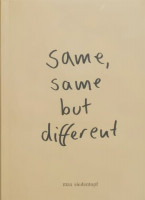 same,
same
but
different